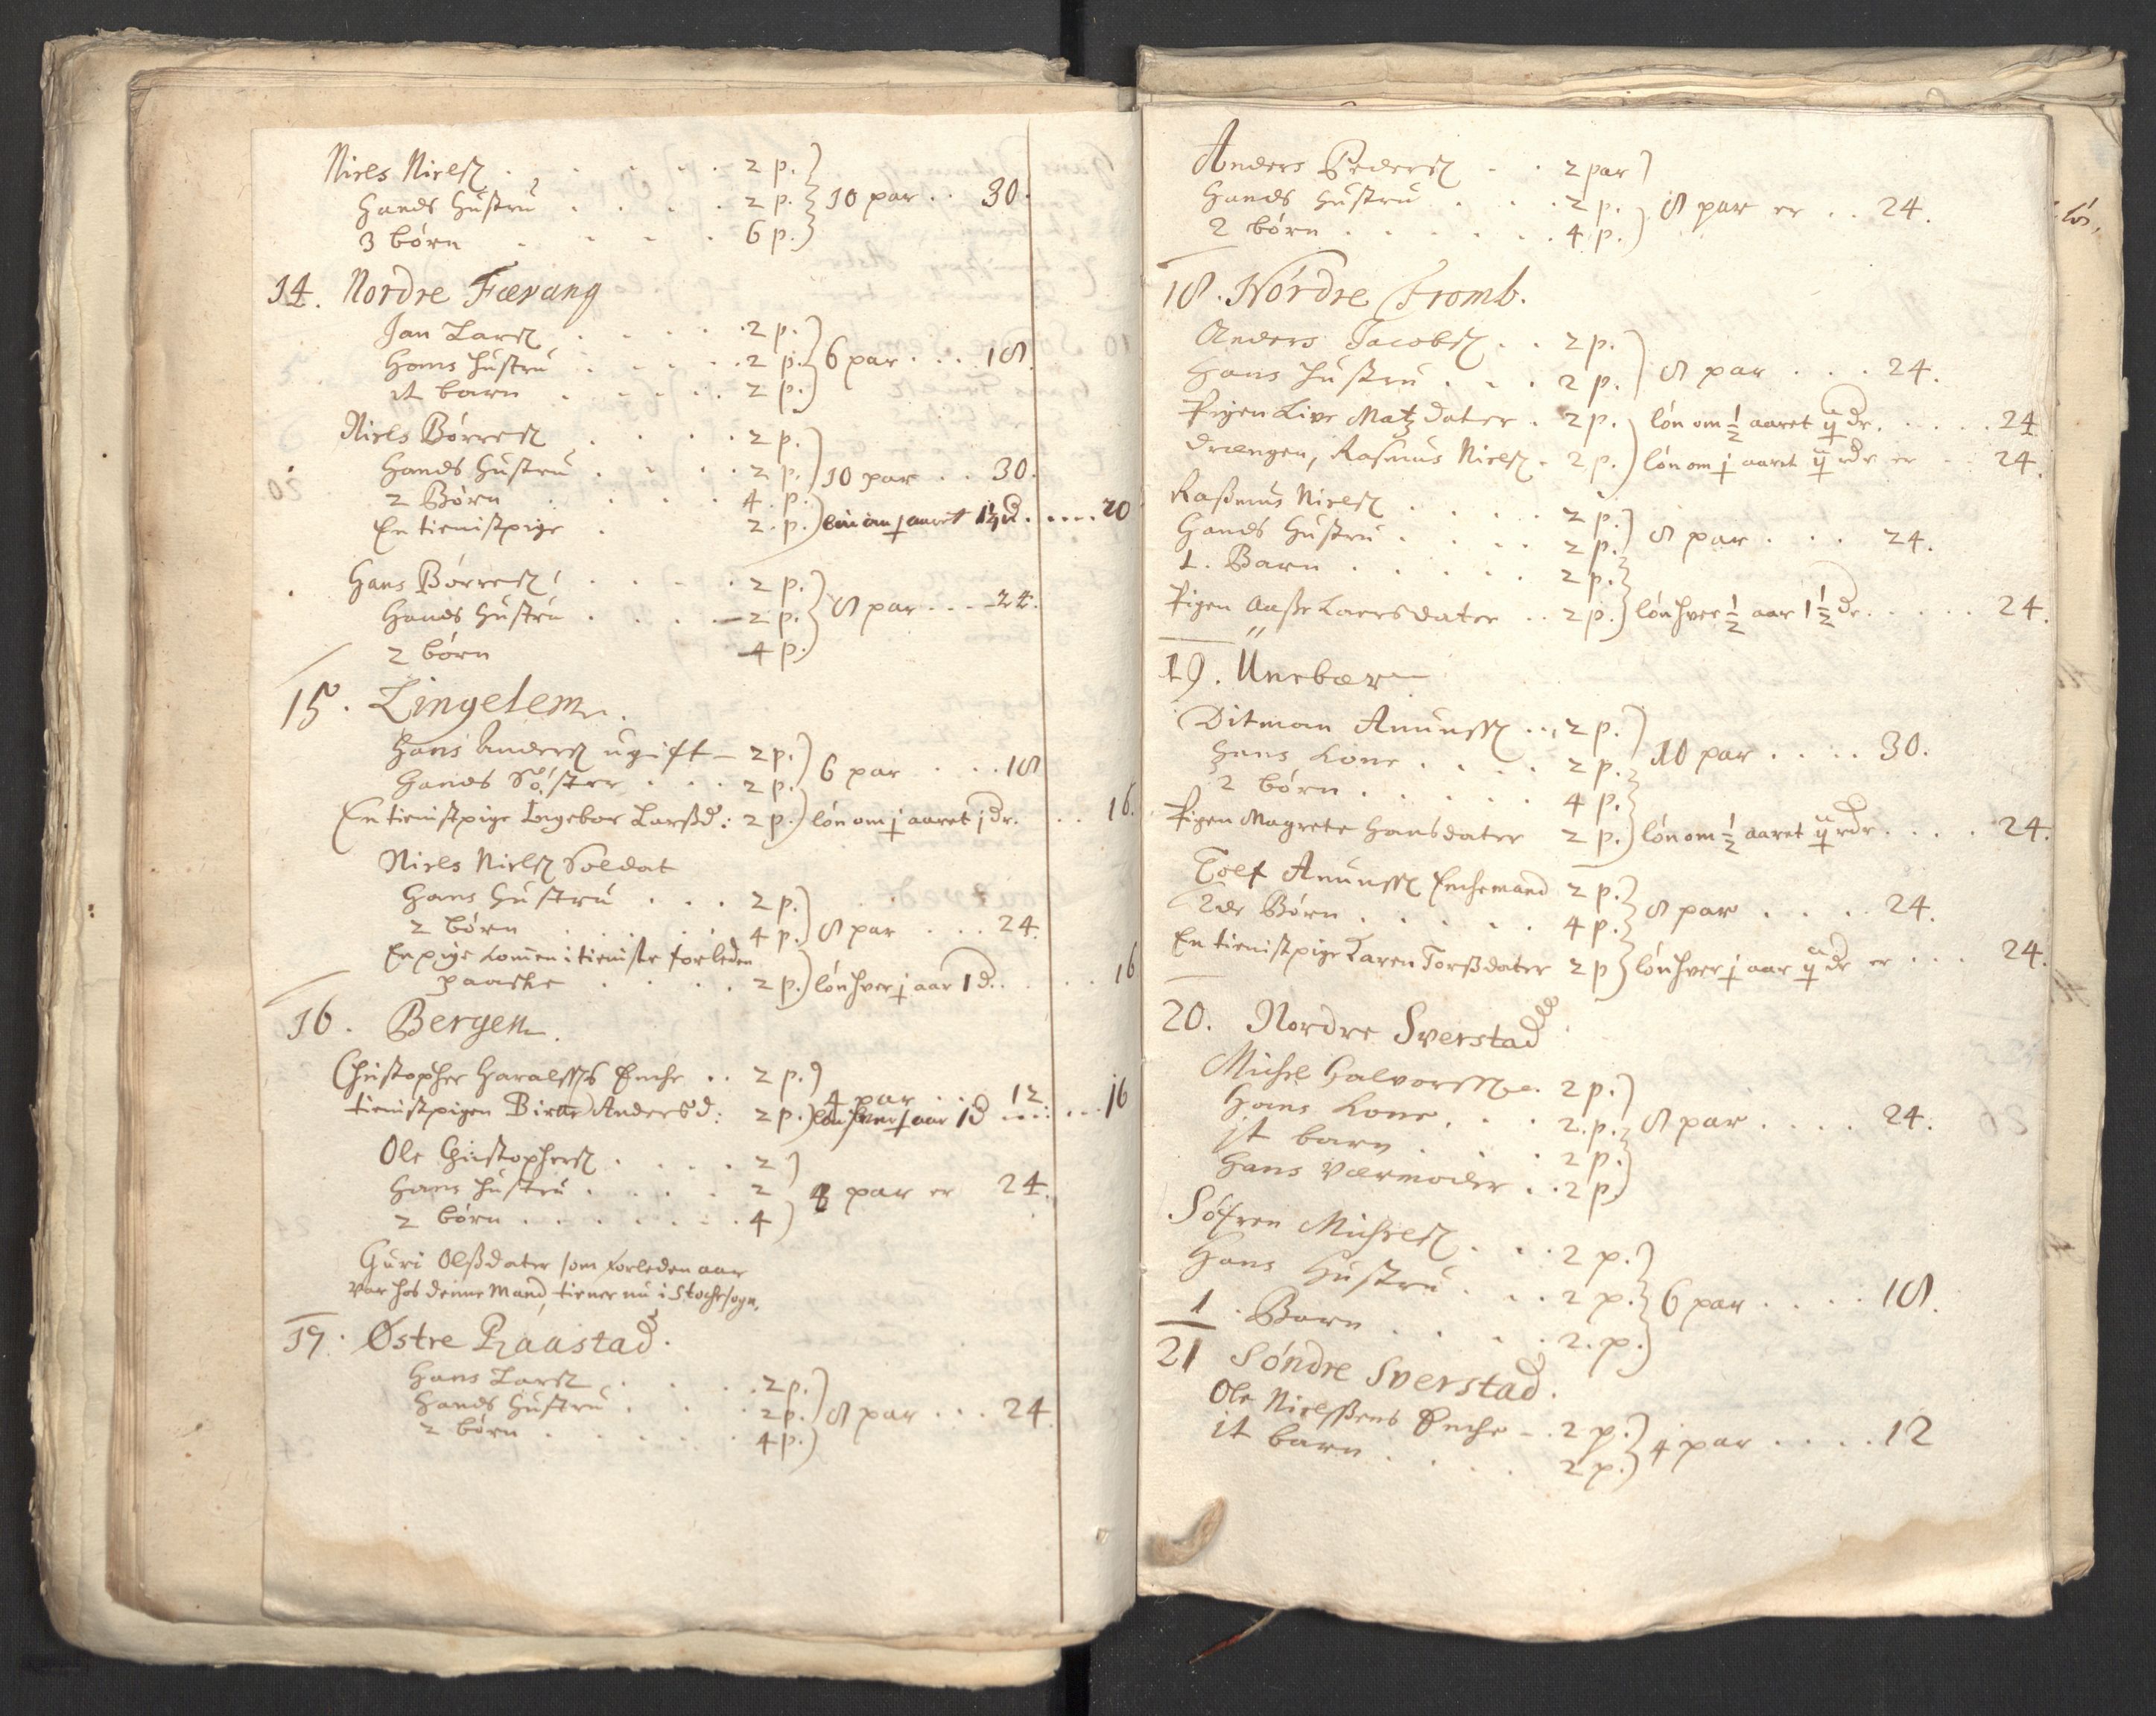 Niels Nielß . . . . . 2 p.
Hands Hustru . . . . 2 p. } 10 par . . 30.
3 börn . . . . 6 p.
14. Nordre Fævang
Jan Larß . . . . 2 p.
Hans Hustru . . . . 2 p. } 6 par . . . 18
it barn . . . . . 2 p.
Niels Börreß . . . . 2 p.
Hands Hustru . . . . 2 p. } 10 par . . 30.
2 Börn . . . . 4. p.
En tienistpige . 2. p. ) lön om j aaret 1½ d. . . . . 20
Hans Börreß . . . . . 2 p.
Hands Hustru . . . . 2 p. } 8 par . . . 24.
2 börn 4 p.
15. Lingelem.
Hans Anderß ugift – 2 p.
Hands Söster . . . 2 p. } 6 par . . . 18
En tienistpige Ingebor Larßd: 2 p. ) lön om j aaret j dr. . . 16
Niels Nielß Soldat
Hans Hustru . . . 2 p.
2 börn . . . . . 4 p. } 8 par . . . 24.
En pige komen i tieniste forleden
paaske . . . . 2 p. ) lön hver j aar 1 d. . . . 16
16. Bergen.
Christopher Haralsßs Enche . . 2 p.
4 par . . . 12
tienistpigen Birte Andersd: 2 p. ) lön hver j aar 1 d . . . . . . 16
Ole Christopherß . . . . 2
Hans Hustru . . . . 2 } 8 par er 24.
2 börn . . . . . . . 4
Guri Olßdater som forleden aar
var hos denne Mand, tiener nu i Stochesogn.
17. Østre Raastad.
Hans Larß . . . 2 p.
Hands Hustru . . . 2 p. } 8 par . . . 24
2 börn . . . . . 4 p.
Anders Pederß . . 2 par
Hands Hustru . . . 2 p. } 8 par er . . 24.
2 börn . . . . . . 4 p.
18. Nördre Fromb.
Anders Jacobß . . 2 p.
Hans Hustru . . . 2 p. } 8 par . . . 24.
Pigen Live Matzdater . 2 p. lön om ½ aaret ij dr. . . . . 24
Drængen, Rasmus Nielß . 2 p. ) lön om j aaret ij rdr er . . 24.
Raßmus Nielß . . . . 2 p.
Hands Hustru . . . . 2 p. } 8 par . . . 24.
1. Barn . . . . . 2 p.
Pigen Aaße Laersdater . . 2 p. ) lön hver ½ aar 1½ dr. . . . . 24.
19. Unebær
Ditman Amunsß . . 2 p.
Hans Kone . . . . 2 p. } 10 par . . . . 30.
2 börn . . . . . 4 p.
Pigen Magrete Hansdater 2 p. ) lön om ½ aaret ij rdr . . . . 24.
Tolf Amunsß Enchemand 2 p.
2de Börn . . . . . 4 p. } 8 par . . . . 24.
En tienistpige Karen Torßdater 2 p ) lön hver j aar ij dr er . . . 24.
20. Nordre Sverstad.
Michel Halvorsß . 2 p.
Hans Kone . . . 2. p. } 8 par . . . . 24.
it barn . . . . 2 p.
Hans Værmoder . . 2 p.
Söfren Michelß . . . 2 p.
Hans Hustru . . . 2 p. } 6 par . . . . 18.
1. Barn . . . . 2. p.
21 Söndre Sverstad.
Ole Nielsßens Enche – . 2 p. } 4 par . . . . 12
it barn . . . . 2 p.